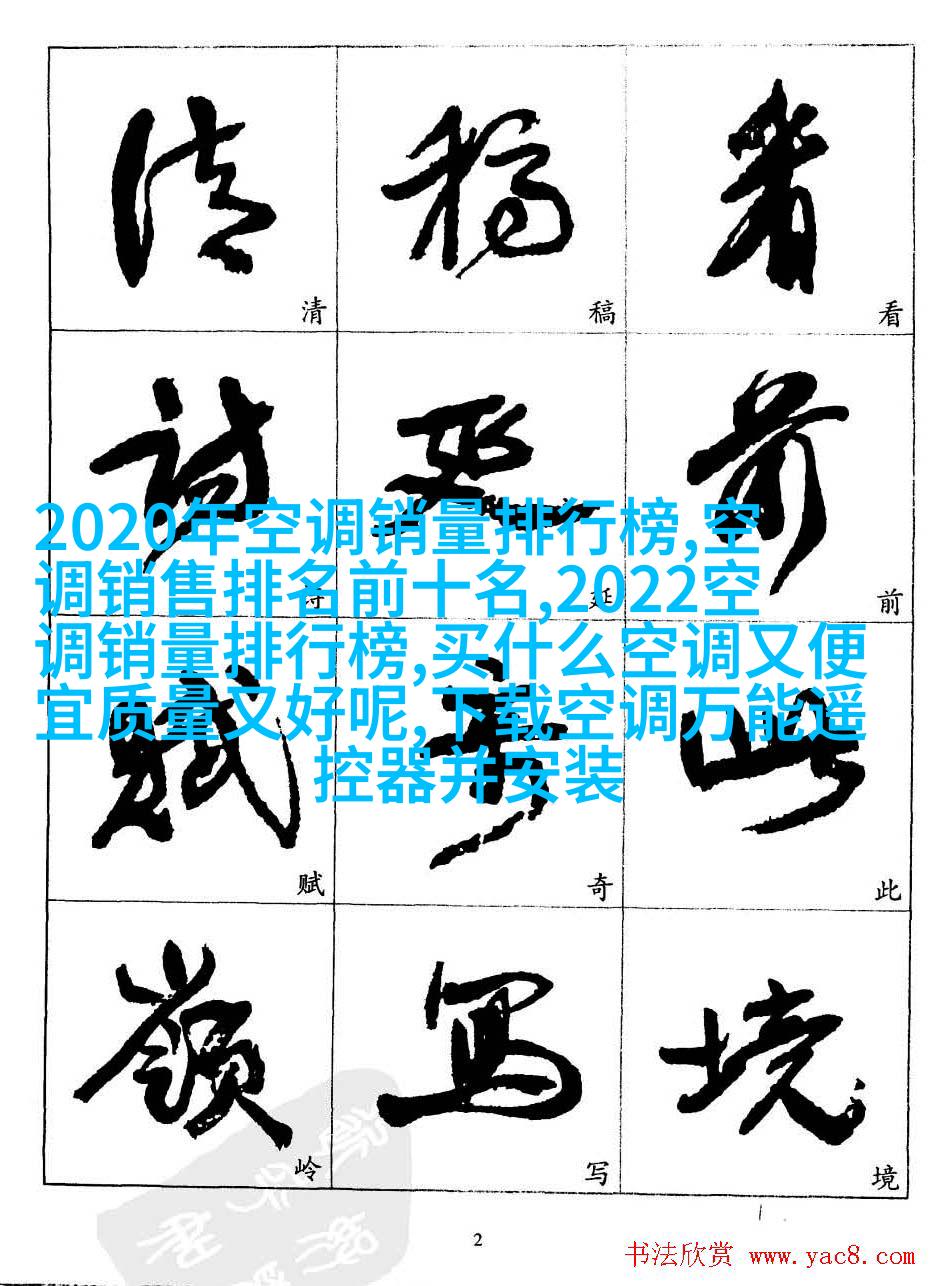 清 稿 看
清 稿 看
诗 延 前
2020年空调销量排行榜,空
调销售排名前十名,2022空
诗 延 前
调销量排行榜,买什么空调又便
宜质量又好呢,下载空调万能遥
控器并安装
赋 奇 此
赋 奇 此
岭 写 境
岭 写 境
2
书法欣赏 www.yac8.com